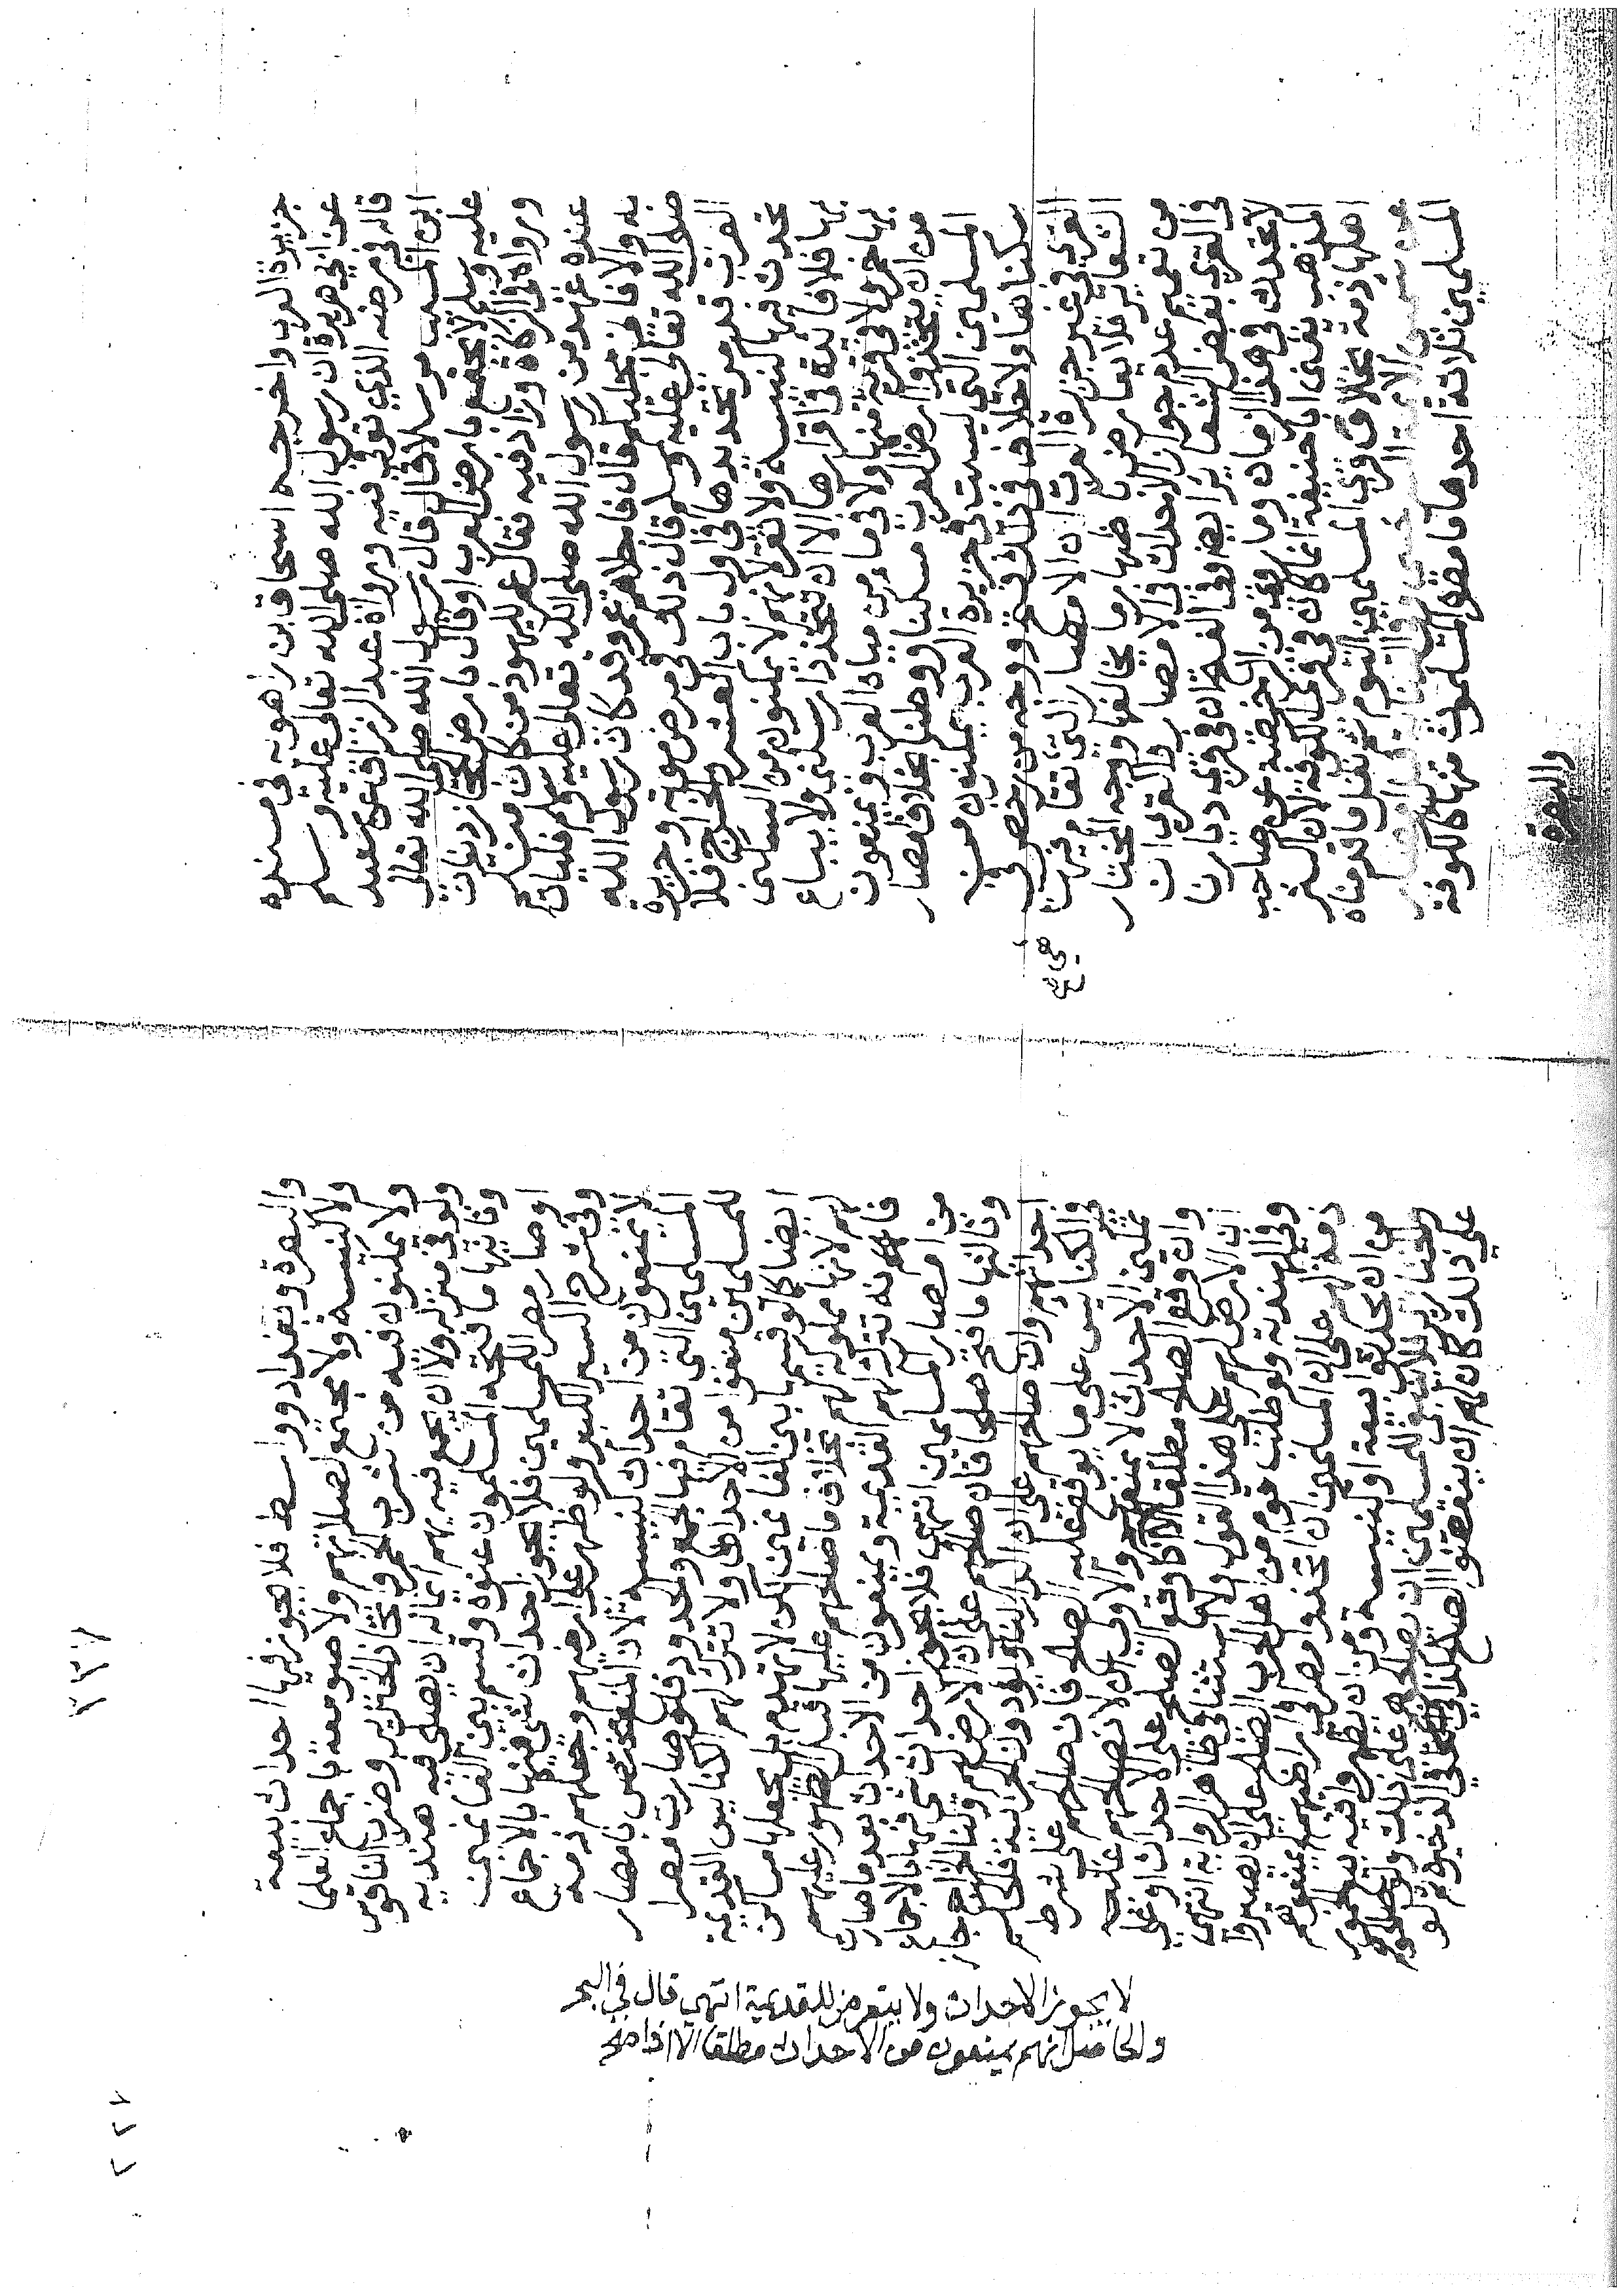 جزيرة العرب واخرجه اسحاق بن راهويه في مسنده
عن ابي هريرة ان رسول الله صلى الله تعالى عليه وسلم
قاله في مرضه الذي توفي فيه ورواه عبد الرزاق عن سعيد
ابن المسيب مرسلا قال قال رسول الله صلى الله تعالى
عليه وسلم لا يجتمع بارض العرب او قال بارض الحجاز دينان
ورواه في الزكاة وزاد فيه فقال عمر لليهود من كان منكم
عنده عهد من رسول الله صلى الله تعالى عليه وسلم فليات
به والا فاني مجليكم قال فاجلاهم عمر وقد كان رسول الله
صلى الله تعالى عليه وسلم قال ذلك في مرض موته وجزيرة
العرب قد مر تحديدها في اول باب العشر والخراج فلا
يحدث فيها كنيسة ولا تقر لانهم لا يمكنون من السكنى
بها فلا فائدة في اقرارها الا ان تتخذ دار سكنى ولا يباع
بها خمر ولا في قرية منها ولا في ماء من مياه العرب ويمنعون
من ان يتخذوا ارض العرب مسكنا ووطنا بخلاف امصار
المسلمين التي ليست في جزيرة العرب يمكنون من
سكناها ولا خلاف في ذلك ووجه من رخص في
القرى في غير جزيرة العرب ان الامصار التي تقام فيها
الشعائر فلا يعارض باظهار ما يخالفها ووجه المختار
من تعميم عدم جواز الاحداث في الامصار والقرى ان
في القرى بعض الشعائر ايضا وفي الفتح ان في قرى ديارنا
لا تحدث في هذا الزمان وما روي من الرخصة عن صاحب
المذهب يعني ابا حنيفة انما كان في قرى الكوفة لان اكثر
اهلها ذمة بخلاف قرى المسلمين اليوم ثم نقل ما قدمناه
عن شمس الائمة
المسلمين ثلاثة احدها ما مصره المسلمون منها كالكوفة
والبصرة
والبصرة وبغداد وواسط فلا يجوز فيها احداث بيعة
ولا كنيسة ولا مجتمع لصلاتهم ولا صومعة باجماع العلما
ولا يمكنون فيه من شرب الخمر واتخاذ الخنزير وضرب الناقوس
ولو في منزله ولا ان يجمع فيه بهم انما له ان يصلي فيه هنديه
وثانيها ما فتحه المسلمون عنوة وقسم بين الغانمين
او صار مصر للمسلمين فلا يجوز احداث شي فيها بالاجماع
وفي شرح السير الكبير ولو ظهر على ارضهم وجعلهم ذمة
لا يمنعون من احداث كنيسة لان المنع مختص بامصار
المسلمين التي تقام فيها الجمع والحدود فلو صارت مصرا
للمسلمين منعوا من الاحداث ولا تترك لهم الكنايس القديمة
ايضا كما لو قسمها بين الغانمين لكن لا تهدم بل يجعلها مساكن
لهم لانها مملوكة لهم بخلاف ما صالحهم عليها قبل الظهور عليهم
فانه تترك لهم القديمة ويمنعون من الاحداث بعد ما صارت
من امصار المسلمين انتهى فلا يجوز احداث شي فيها بالاجماع
وثالثها ما فتح صلحا فان صالحهم على ان الارض لهم ولنا الخراج جاز
احداثهم وان صالحهم على ان الدار لنا ويؤدون الجزية فالحكم
في الكنايس على ما يوقع عليه الصلح فان صالحهم على شرط
تمكين الاحداث لا نمنعهم والاولى ان لا نصالحهم
وان وقع الصلح مطلقا
ان الارض لهم على هذا القول ولا استثنا في ظاهر الرواية انتهى
وفي الهندية ولو طلب قوم من اهل الحرب الصلح على ان يصيروا
ذمة لهم على ان المسلمين ان اتخذوا مصرا في اراضيهم لم يمنعوهم
من ان يحدثوا بيعة او كنيسة ومن ان يظهروا فيه بيع الخمور
على ذلك كان لهم ان ينقضوا الصلح
لا يجوز الاحداث ولا يتعرض للقديمة انتهى قال في البحر
والحاصل انهم يمنعون من الاحداث مطلقا الا اذا